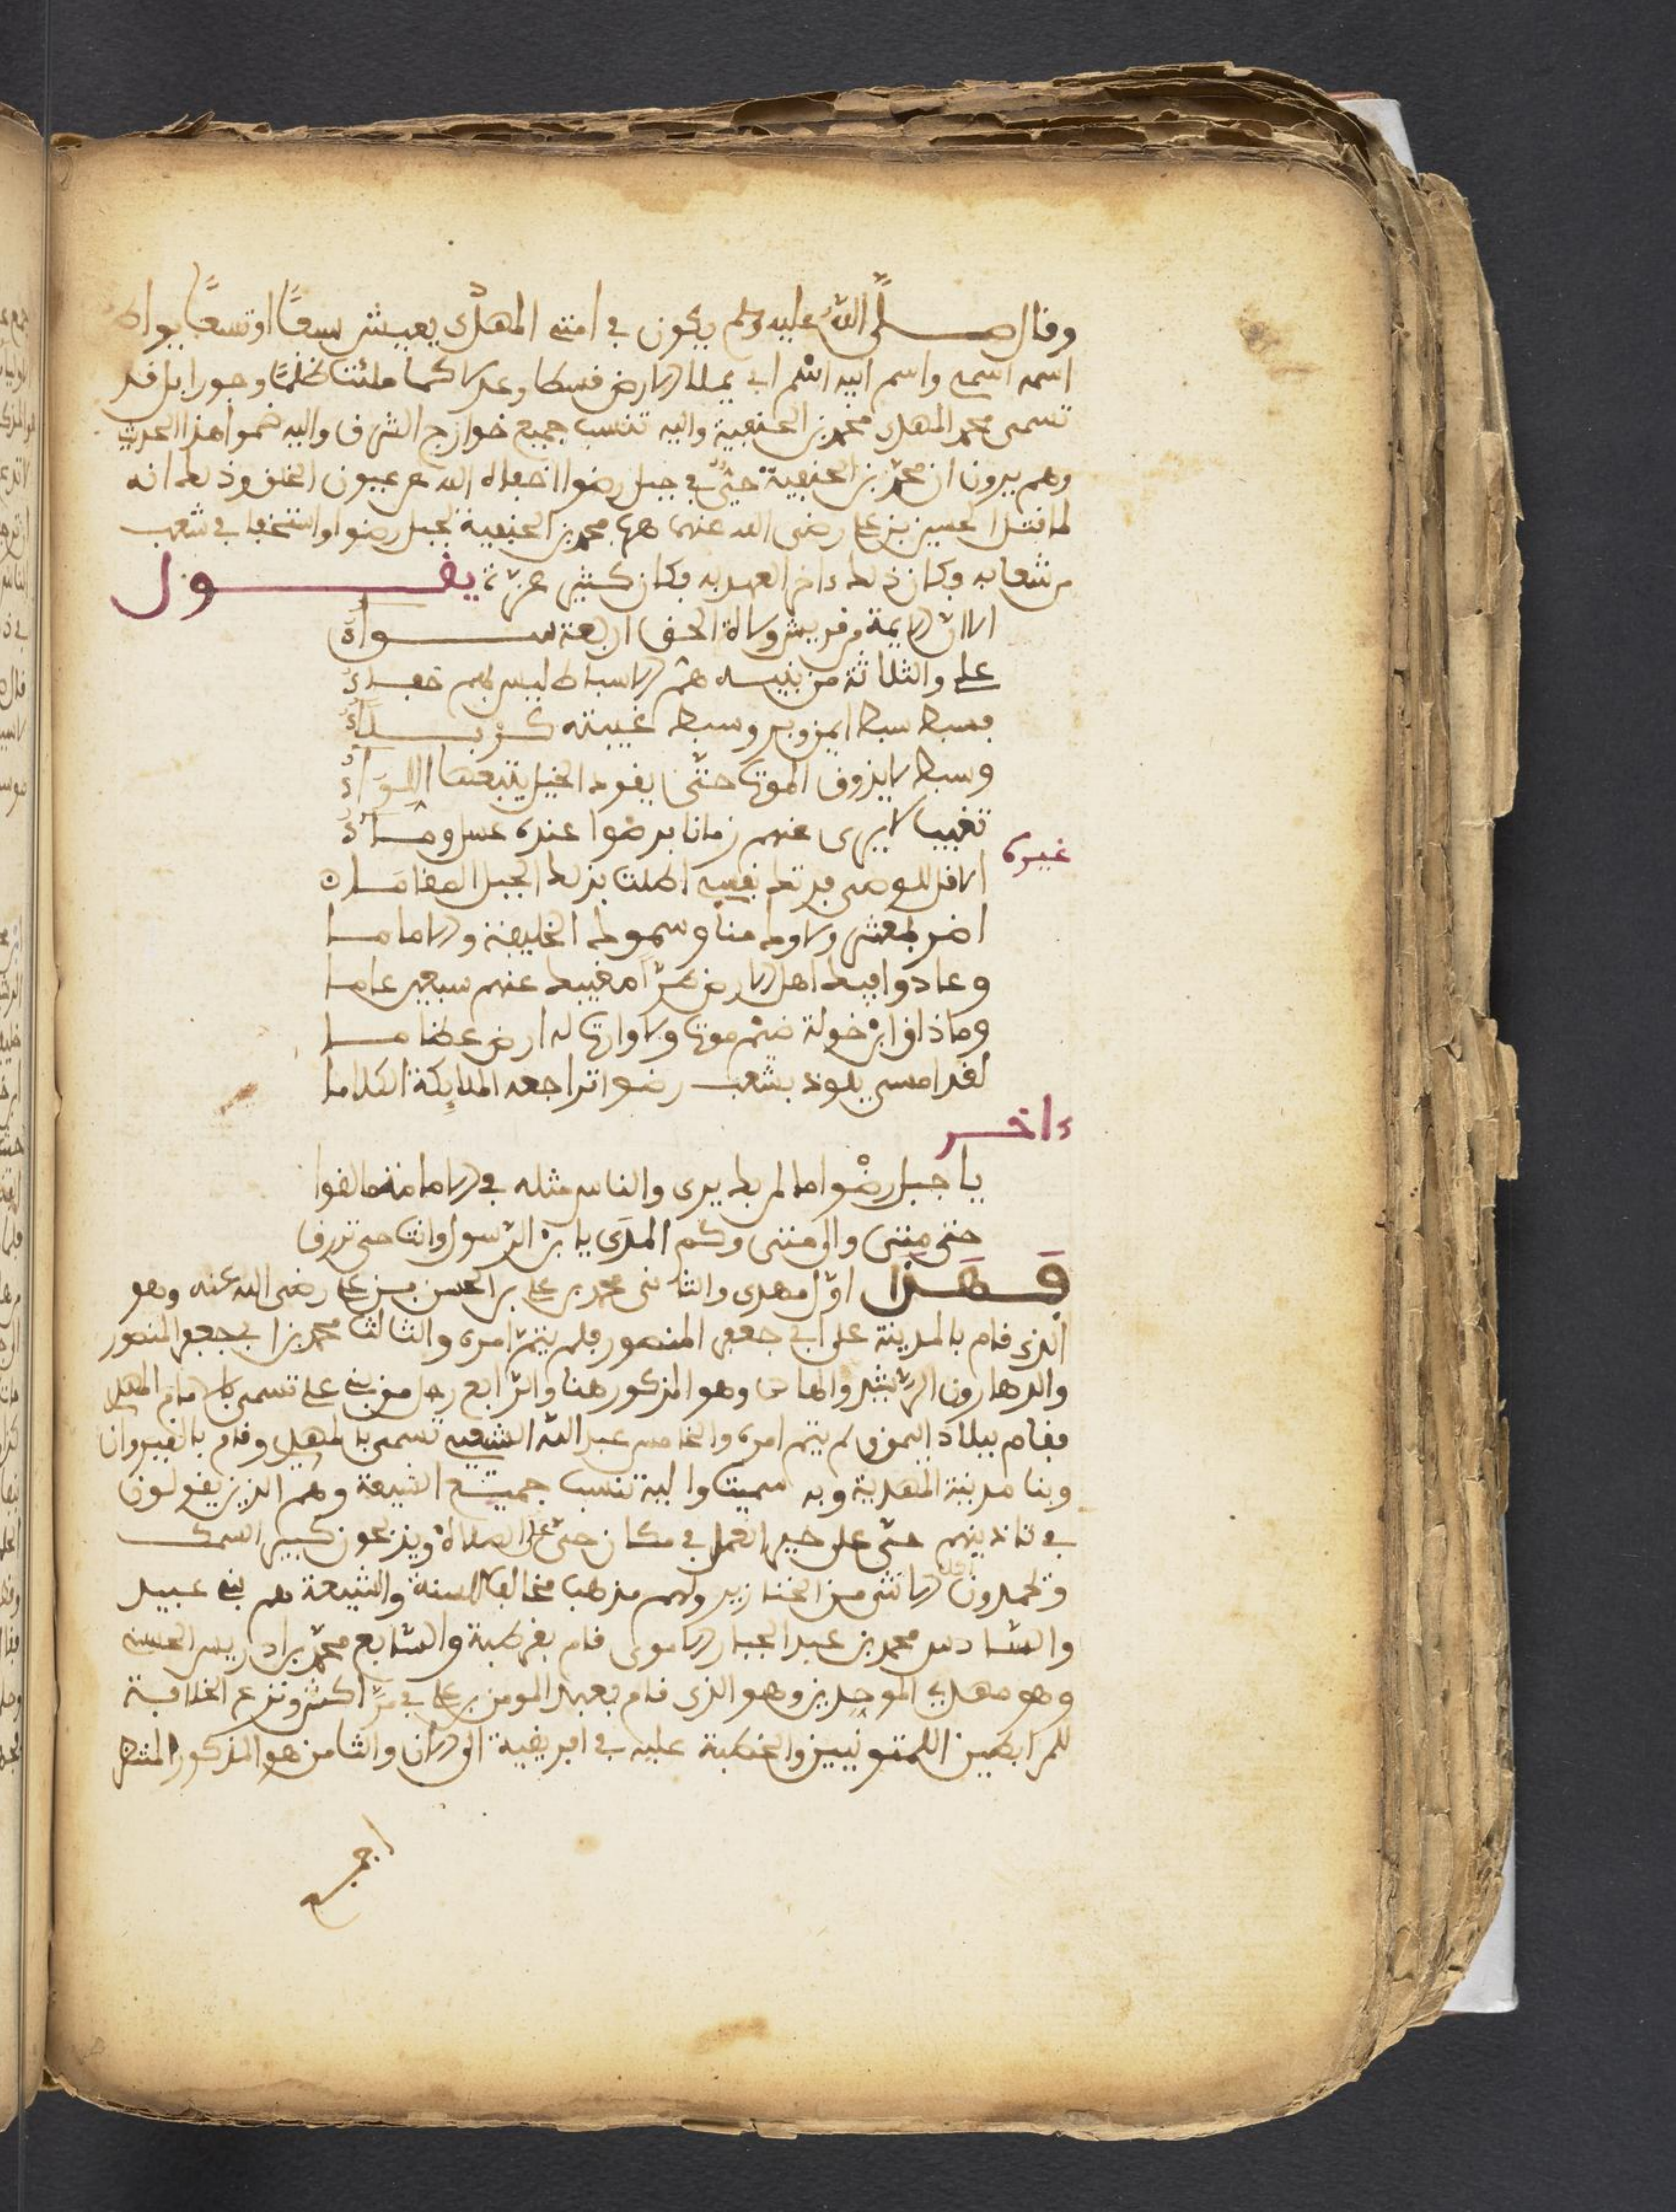 وقال صلى الله عليه وسلم يكون في امتي المهدي يعيش سبعًا او تسعًا يواطي
اسمه اسمي واسم ابيه اسم ابي يملا الارض قسطا وعدلا كما ملئت ظلمًا وجورا بل قد
تسمى محمد المهدي محمد بن الحنفية واليه تنسب جميع خوارج الشرق واليه ضموا هذا الحديث
وهم يرون ان محمد بن الحنفية حيٌّ في جبل رضوا اخفاه الله عن عيون الخلق وذلك انه
لما قتل الحسين بن علي رضي الله عنهما هرب محمد بن الحنفية لجبل رضوا واستخفا في شعب
من شعابه وكان ذلك ءاخر العهد به وكان كثير عزّة يقول
الا ان الايمة من قريش ولاة الحق اربعة سواءُ
علي والثلاثة من بنيه هم الاسباط ليس بهم خفاءُ
فسبط سبط ايمن وبر وسبط غيبته كربلاءُ
وسبط لا يذوق الموت حتّى يقود الخيل يتبعها اللواءُ
تغيب لا يرى عنهم زمانا برضوا عنده عسل وماءُ
غيره
الا قل للوصي فدتك نفسي اطلت بذلك الجبل المقاما
اضر بمعشر والوك منا وسموك الخليفة والاماما
وعادوا فيك اهل الارض طرّا مغيبك عنهم سبعين عاما
وما ذاق ابن خولة طعم موت ولا وارت له ارض عظاما
لقد امسى يلوذ بشعب رضوا تراجعه الملايكة الكلاما
ءاخر
يا جبل رضْوا ما لمن بك يرى والناس مثله في الامامة مالفوا
حتى متى والى متى وكم المدَى يا بن الرسول وانت حي ترزق
فهذا اوّل مهدي والثاني محمد بن علي بن الحسن بن علي رضي الله عنه وهو
الذي قام بالمدينة على ابي جعفر المنصور فلم يتمّ امره والثالث محمد بن ابي جعفر المنصور
والد هارون الرشيد والهادي وهو المذكور هنا والرّابع رجل من بني علي تسمى بالامام المهدي
فقام ببلاد اليمن ولم يتم امره والخامس عبد الله الشيعي تسمى بالمهدي وقام بالقيروان
وبنا مدينة المهدية وبه سميت واليه تنسب جميع الشيعة وهم الذين يقولون
في تاذينهم حيّ على خير العمل في مكان حيّ على الصلاة ويذبحون كبير السمك
ويحمدون اكل الانثى من الخنازير ولهم مذهب مخالف للسنة والشيعة هم بني عبيد
والسّادس محمد بن عبد الجبار الاموي قام بقرطبة والسّابع محمّد بن ادريس الحسني
وهو مهدي الموحدين وهو الذي قام بعبد المومن بن علي في مرّاكش ونزع الخلافة
للمرابطين اللمتونيين والخطبة عليه في افريقية الى الان والثامن هو المذكور المنتظر